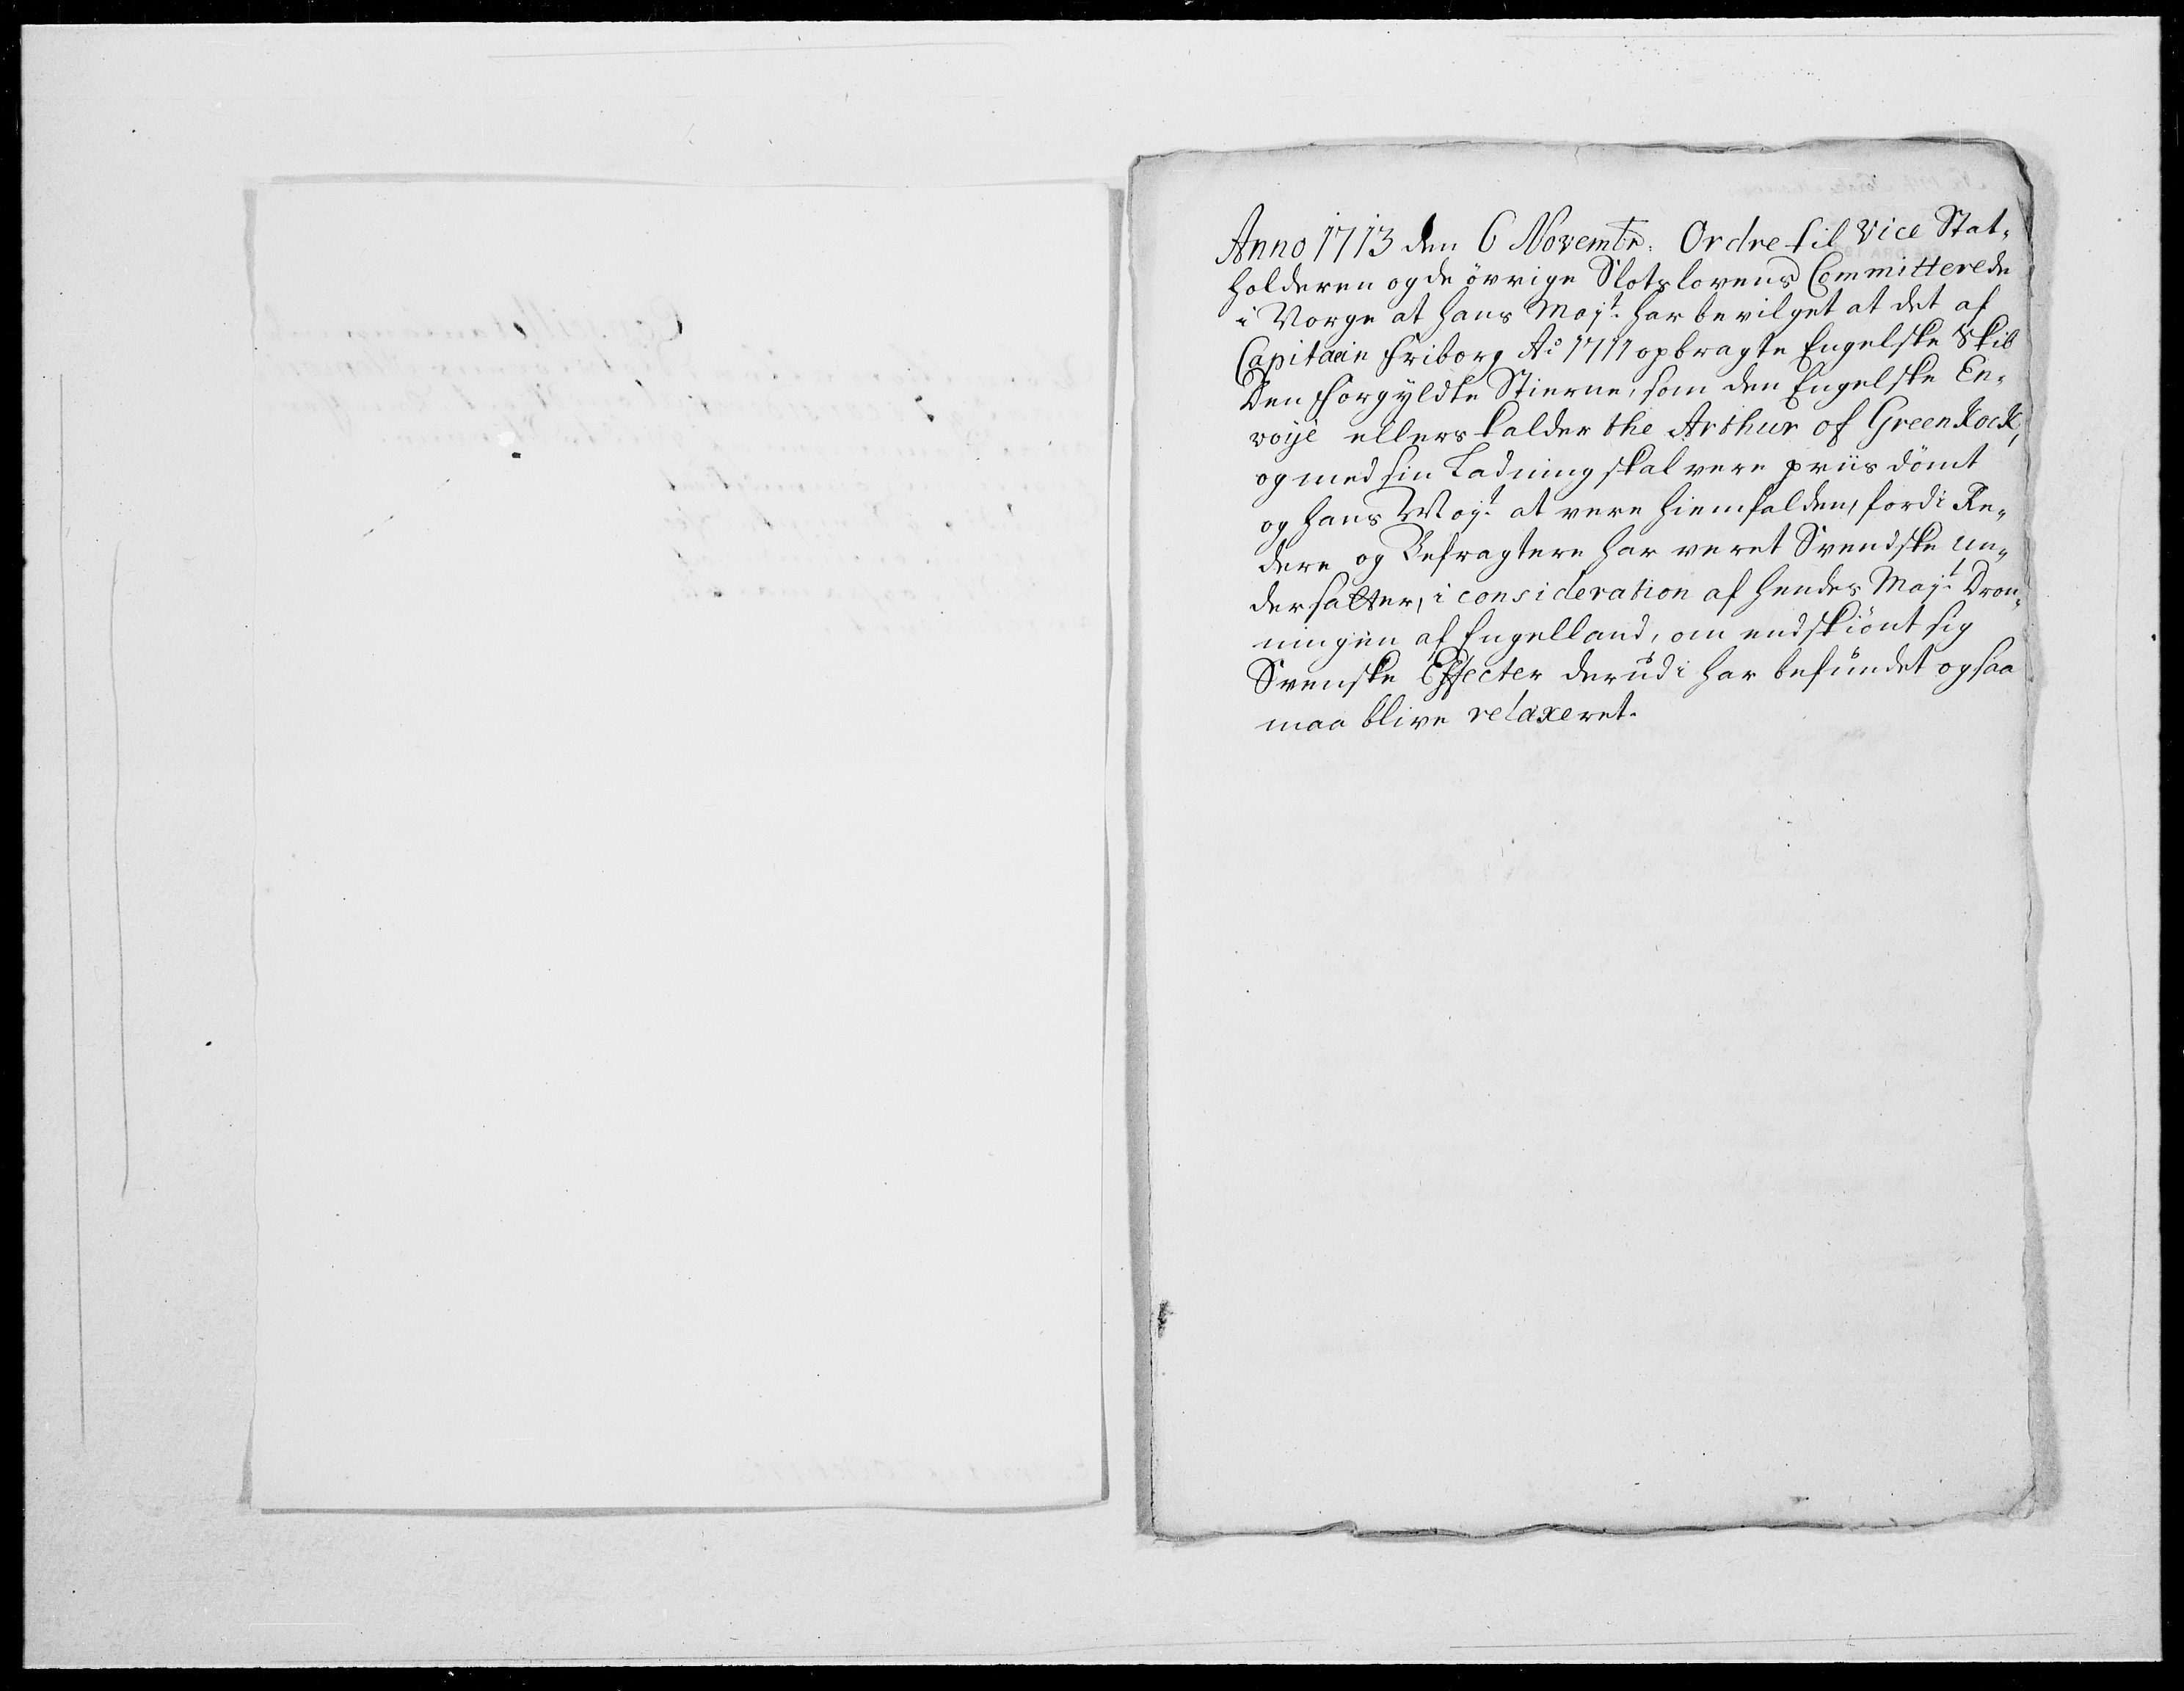 Anno 1713 den 6 Novembr. Ordre til Vice Stat-
holderen og de övrige Slotslovens Committerede
i Norge at hans Majt. har bevilget at det af
Capitain Friborg Ao 1711 opbragte Engelske Skib
Den forgyldte Stierne, som den Engelske En-
voije ellers kalder the Arthur of Greenkock,
og med sin Ladning skal vere priis dömt
og hans Majt. at vere hiemfalden, fordi Re-
dere og Befragtere har veret Svendske un-
dersatter, i consideration af hendes Majt. Dron-
ningen af Engelland, om endskiönt sig
Svenske Effecter derudi har befundet ogsaa
maa blive relaxeret.